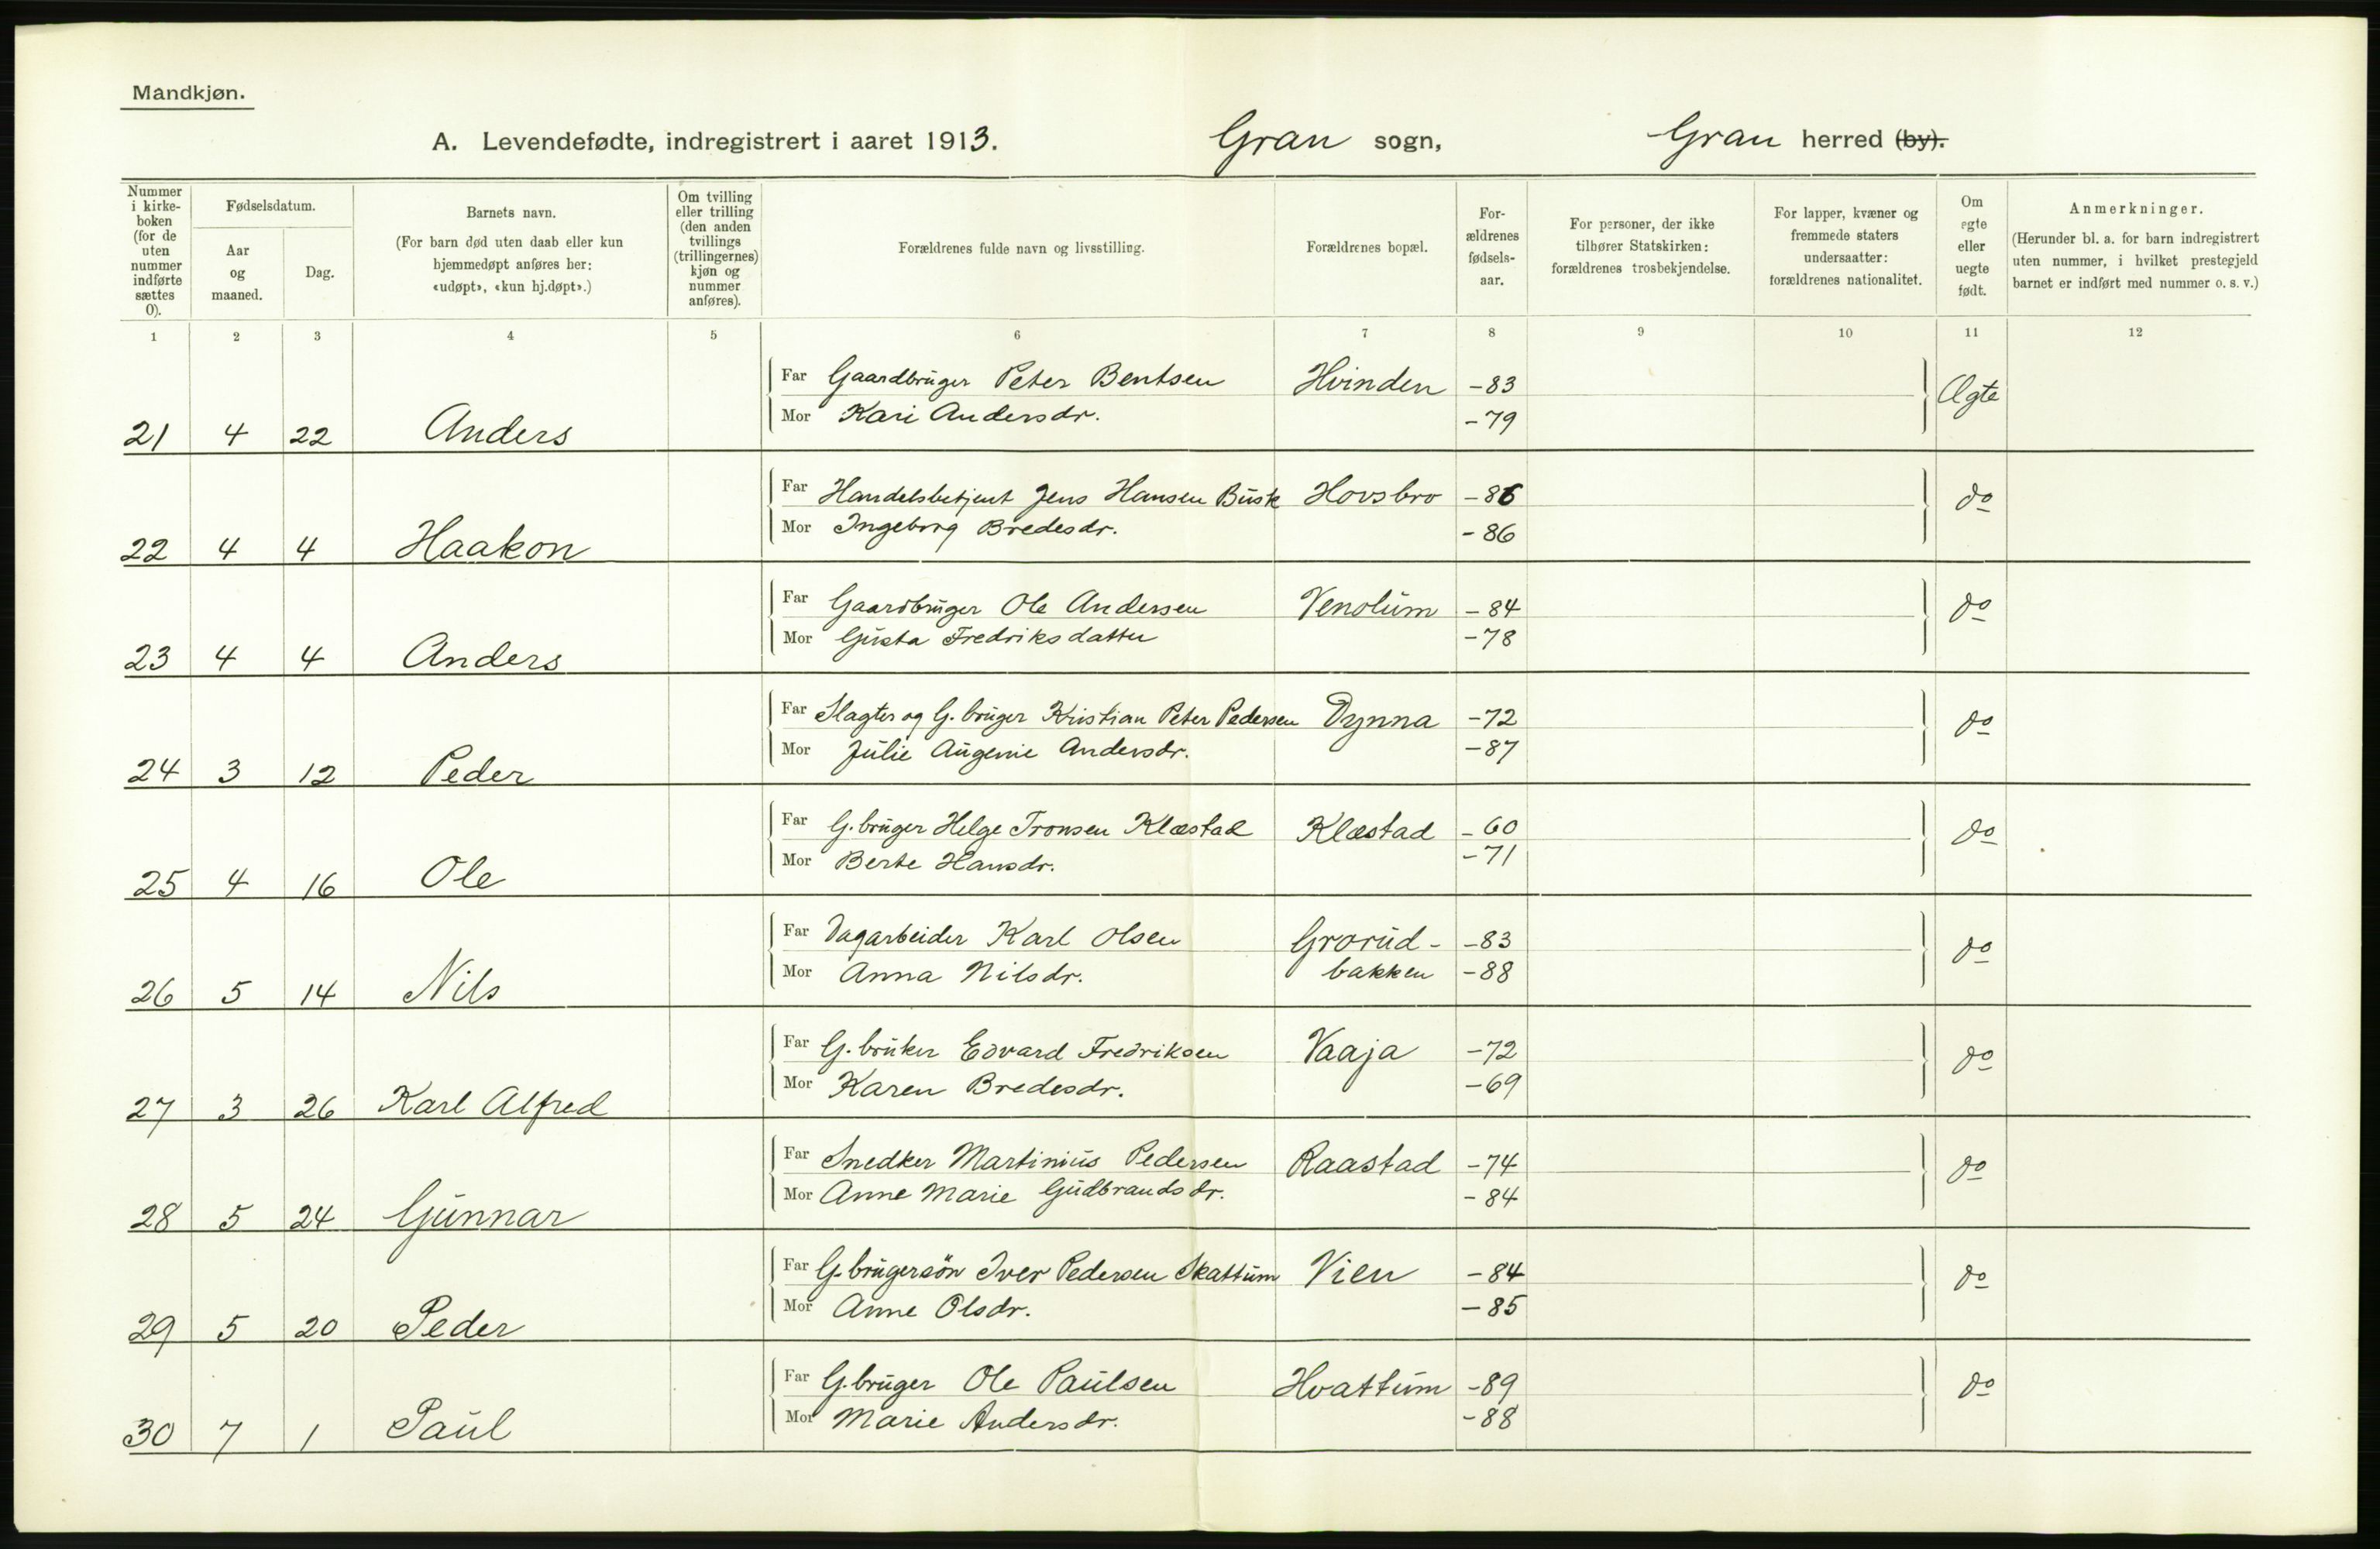 Mandkjøn.
A. Levendefødte, indregistrert i aaret 1913. Gran sogn, Gran herred (by).
Nummer i kirke-boken (for de uten nummer indførte sættes 0).
Fødselsdatum.
Aar og maaned.
Dag.
Barnets navn.
(For barn død uten daab eller kun hjemmedøpt anføres her: «udøpt», «kun hj.døpt».)
Om tvilling eller trilling (den anden tvillings (trillingernes) kjøn og nummer anføres).
Forældrenes fulde navn og livsstilling.
Forældrenes bopæl.
For-ældrenes fødsels-aar.
For personer, der ikke tilhører Statskirken: forældrenes trosbekjendelse.
For lapper, kvæner og fremmede staters undersaatter: forældrenes nationalitet.
Om egte eller uegte født.
Anmerkninger.
(Herunder bl. a. for barn indregistrert uten nummer, i hvilket prestegjeld barnet er indført med nummer o. s. v.)
1 2 3 4 5 6 7 8 9 10 11 12
Far Gaardbruger Peter Bentsen Hvinden -83 Ægte
Mor Kari Andersdr. -79
21 4 22 Anders
Far Handelsbetjent Jens Hansen Busk Hovsbro -86 do
Mor Ingeborg Bredesdr. -86
22 4 4 Haakon
Far Gaardbruger Ole Andersen Venolum -84 do
Mor Gusta Fredriksdatter -78
23 4 4 Anders
Far Slagter og G. bruger Kristian Peter Pedersen Dynna -72 do
Mor Julie Augenie Andersdr. -87
24 3 12 Peder
Far G. bruger Helge Tronsen Klæstad Klæstad -60 do
Mor Berte Hansdr. -71
25 4 16 Ole
Far Dagarbeider Karl Olsen Grorud- -83 do
Mor Anna Nilsdr. bakken -88
26 5 14 Nils
Far G. bruker Edvard Fredriksen Vaaja -72 do
Mor Karen Bredesdr. -69
27 3 26 Karl Alfred
Far Snedker Martinius Pedersen Raastad -74 do
Mor Anne Marie Gudbrandsdr. -84
28 5 24 Gunnar
Far G. brugersön Iver Pedersen Skattum Vien -84 do
Mor Anne Olsdr. -85
29 5 20 Peder
Far G. bruger Ole Paulsen Hvattum -89 do
Mor Marie Andersdr. -88
30 7 1 Paul